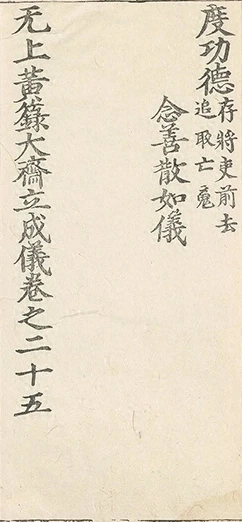 度功德存將吏前去
追取亡魂
念善散如儀
无上黃籙大齋立成儀卷之二十五